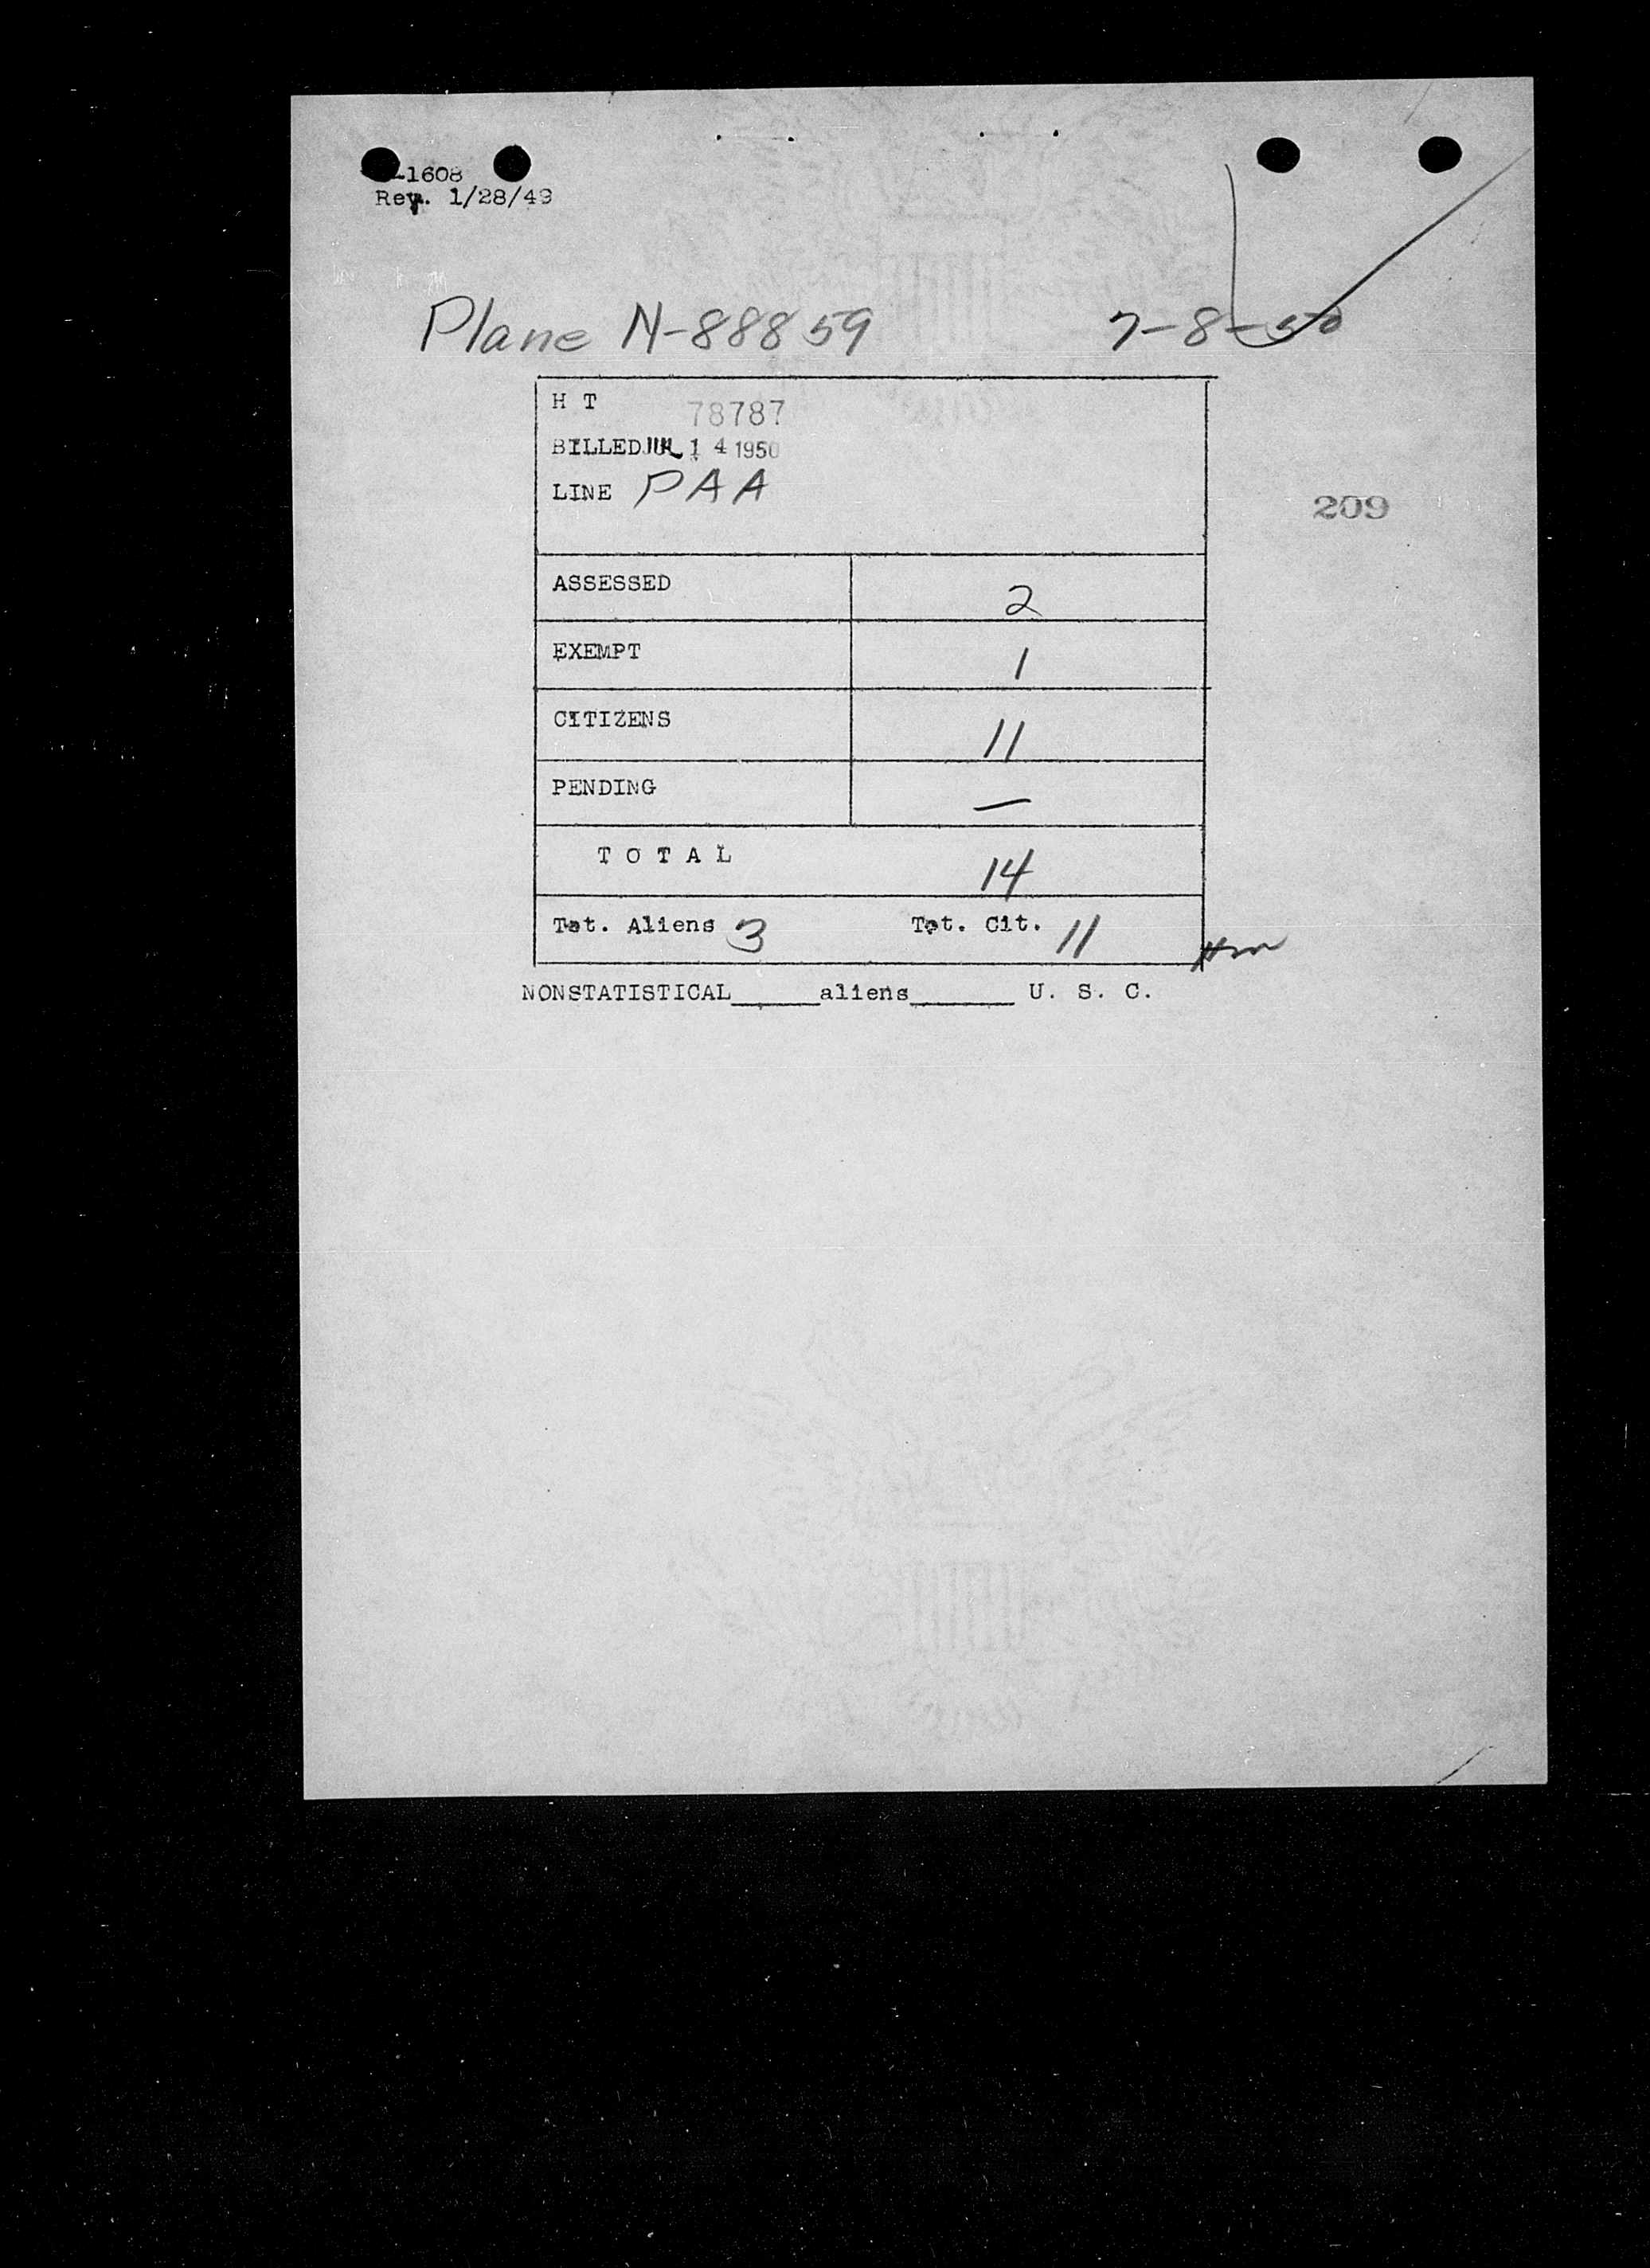 -1608
Rev. 1/28/49
Plane N-88859 7-8-50
H T 78787
BILLED JUL 14 1950
LINE PAA
209
ASSESSED 2
EXEMPT 1
CITIZENS 11
PENDING —
T O T A L 14
Tot. Aliens 3 Tot. Cit. 11
NONSTATISTICAL______aliens_______ U. S. C.